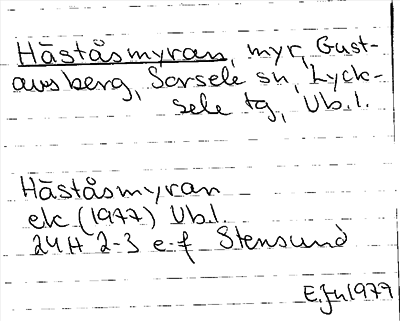 Häståsmyran, myr, Gust-
avsberg, Sorsele sn, Lyck-
sele tg, Vb.l.
Häståsmyran
ek (1977) Vb.l.
24H 2-3 e-f Stensund
E.Jn 1979